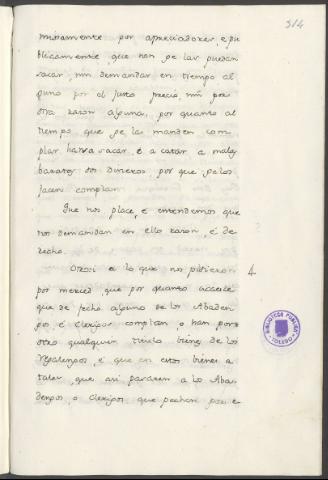 314
mismamente por apreciadores, e pu
blicamente, que non se las puedan
sacar, nin demandar en tiempo al
guno por el justo precio, nin por
otra razon alguna, por quanto al
tiempo que se las manden com
prar hasta sacar, e a catar a malas
baratas los dineros, por que se los
facen comprar.
Que nos place, e entendemos que
nos demandan en ello razon, é de
recho.
Otrosi a lo que nos pidieron
4
por merced, que por quanto acaesce
que de fecho alguno de los Abaden
gos é clerigos compran, o han por
otro qualquier titulo bienes de los
regalengos, é que en estos bienes a
tales, que asi pasaren a los Aba
dengos o clerigos que pechan por e
BIBLIOTECA PUBLICA
TOLEDO